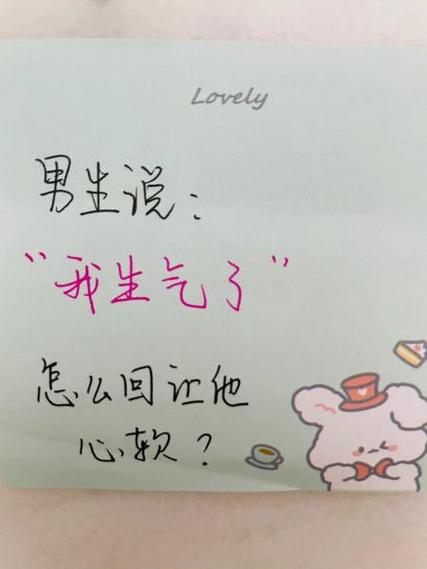 Lovely
男生说：
“我生气了”
怎么回让他
心软？